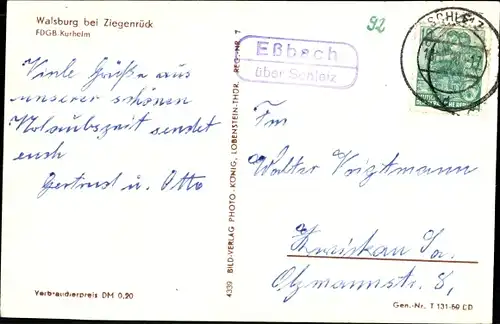 Walsburg bei Ziegenrück
FDGB-Kurheim
92
SCHLEIZ
Eßbach
über Schleiz
10
Viele Grüße aus
unserer schönen
Urlaubszeit sendet
euch
Gertrud u. Otto
4339 BILD-VERLAG PHOTO-KÖNIG, LOBENSTEIN-THÜR. REG.-NR 7
Fm
Walter Voigtmann
Zwickau Sa.
8,
Verbraucherpreis DM 0,20
Gen.-Nr. T 131-60 DD